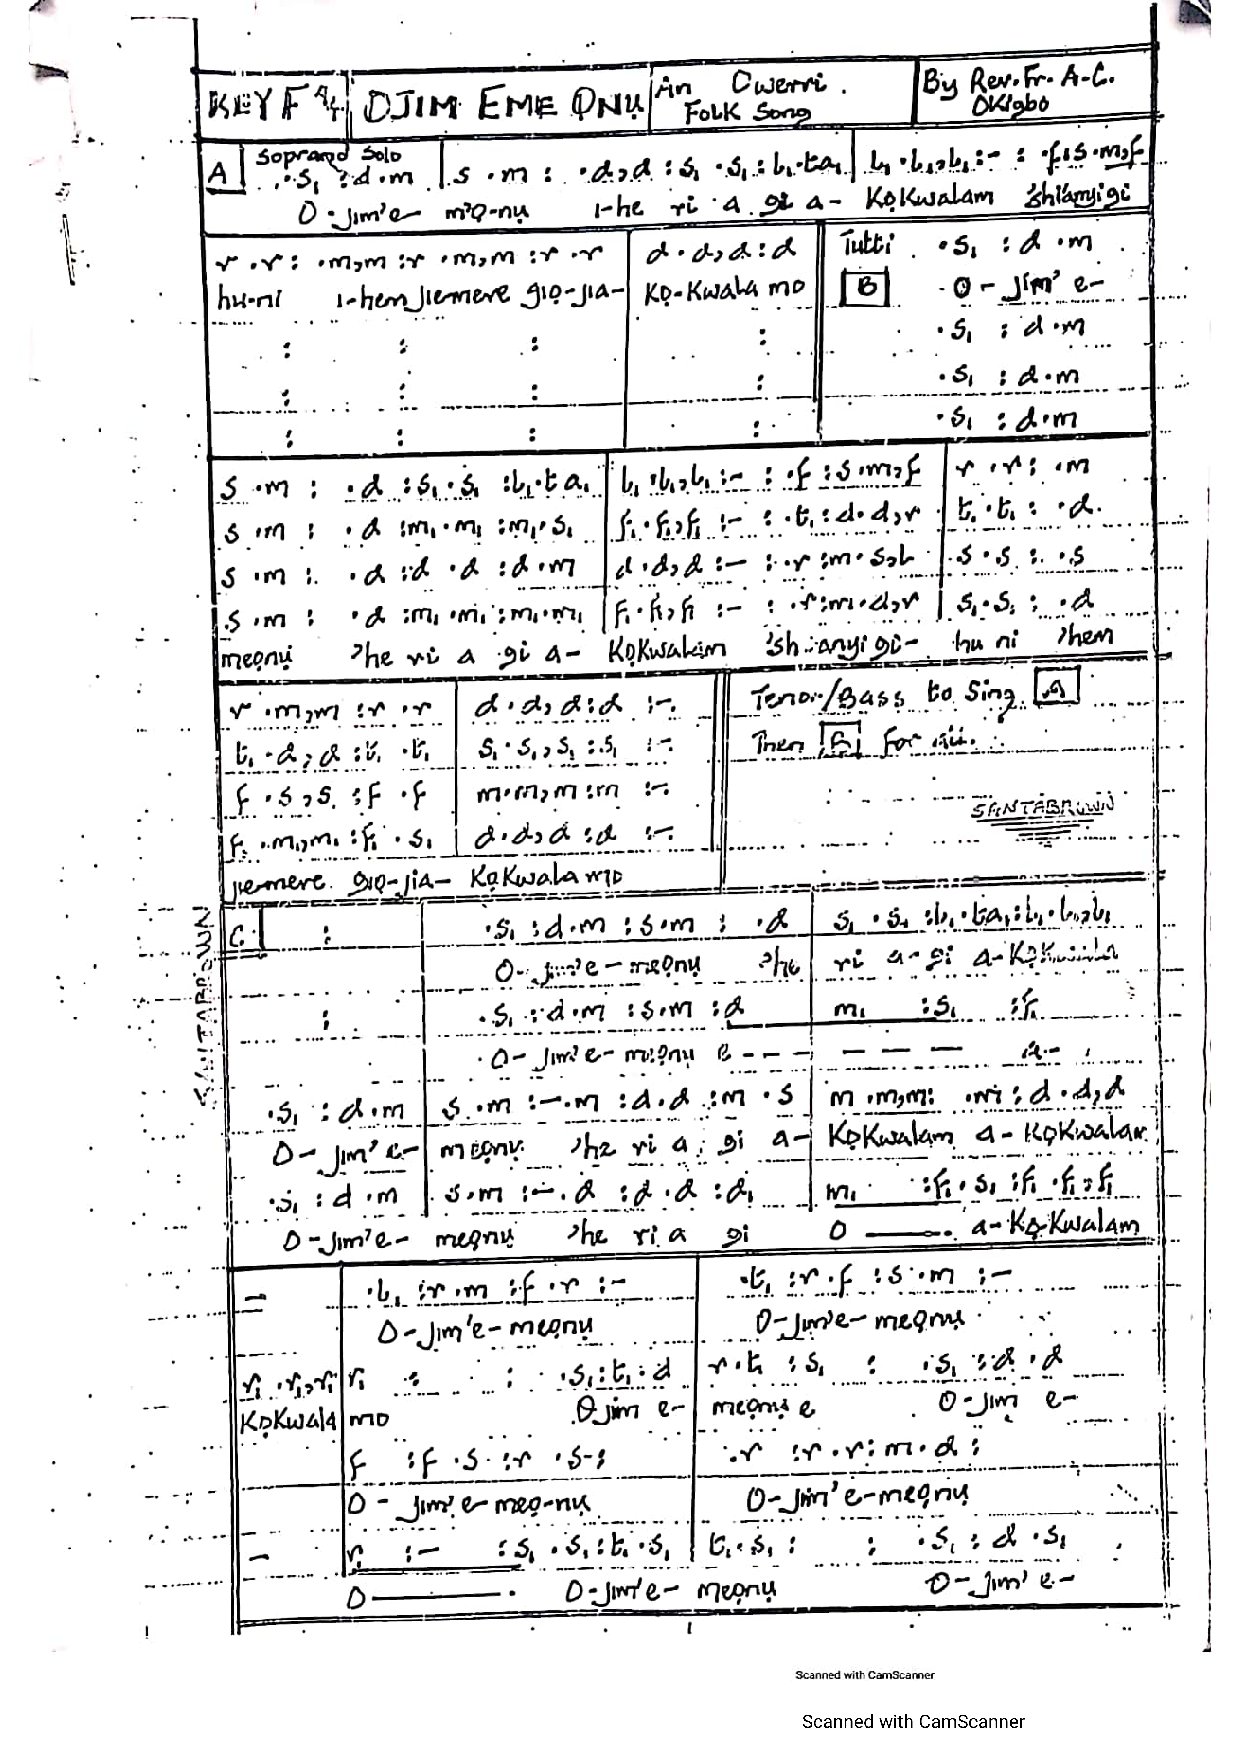 KEY F 4/4 OJIM EME ỌNỤ An Owerri Folk Song By Rev. Fr. A-C. Okigbo
A Soprano Solo
.s₁ :d.m | s.m : .d,d :s₁ .s₁ :l₁.ta₁ | l₁.l₁,l₁:- : .f:s.m,f
O-jim'e- m'ọ-nụ 1-he ri a gi a- KọKwalam 'shianyigi
r.r: .m,m :r .m,m :r.r | d.d,d:d | Tutti .s₁ :d.m
hu-ni 1-hem Jiemere gịọ-jia- Kọ-Kwala mo B O-Jim' e-
: : : : .s₁ :d.m
: : : : .s₁ :d.m
: : : : .s₁ :d.m
s.m : .d :s₁.s₁ :l₁.ta₁ | l₁.l₁,l₁:- : .f :s.m,f | r.r: .m
s.m : .d :m₁.m₁ :m₁.s₁ | f₁.f₁,f₁ :- : .t₁:d.d,r | t₁.t₁: .d
s.m : .d :d.d :d.m | d.d,d :- : .r :m.s,l | s.s : .s
s.m : .d :m₁.m₁:m₁.m₁ | f₁.f₁,f₁ :- : .r:m.d,r | s₁.s₁: .d
meọnụ 'he ri a gi a- KọKwalam 'shianyigi- hu ni 'hem
r.m,m :r.r | d.d,d:d :-. Tenor/Bass to Sing A
t₁.d,d :t₁.t₁ | s₁.s₁,s₁:s₁ :-. Then B For all.
f.s,s :f.f | m.m,m:m :-.
f₁.m₁,m₁:f₁.s₁ | d.d,d :d :-. SANTABROWN
Jiemere gịọ-jia- KọKwala mo
SANTABROWN
C : | .s₁ :d.m :s.m : .d | s₁.s₁ :l₁.ta₁:l₁.l₁,l₁
O-jim'e-meọnụ 'he ri a-gi a-KọKwala
: | .s₁ :d.m :s.m :d | m₁ :s₁ :f₁
O-Jim'e-meọnụ e - - - - - - a-
.s₁ :d.m | s.m :-.m :d.d :m.s | m.m,m: .m:d.d,d
O-Jim'e- meọnụ 'he ri a gi a- KọKwalam a-KọKwalam
.s₁ :d.m | s.m :-.d :d.d :d₁ | m₁ :f₁.s₁:f₁.f₁,f₁
O-Jim'e- meọnụ 'he ri a gi O ——. a-Kọ-Kwalam
- | .l₁ :r.m :f.r :- | .t₁ :r.f :s.m :-
O-Jim'e-meọnụ O-Jim'e-meọnụ
r₁.r₁,r₁ | r₁ : : .s₁:t₁.d | r.t₁ :s₁ : .s₁ :d.d
KọKwala mo Ojim e- meọnụ e O-Jim e-
f :f.s :r.s-: | .r :r.r:m.d :
O-Jim'e-meọ-nụ O-Jim'e-meọnụ
- | r₁ :- :s₁.s₁:t₁.s₁ | t₁.s₁ : : .s₁ :d.s₁
O ——. O-Jim'e- meọnụ O-Jim' e-
Scanned with CamScanner
Scanned with CamScanner